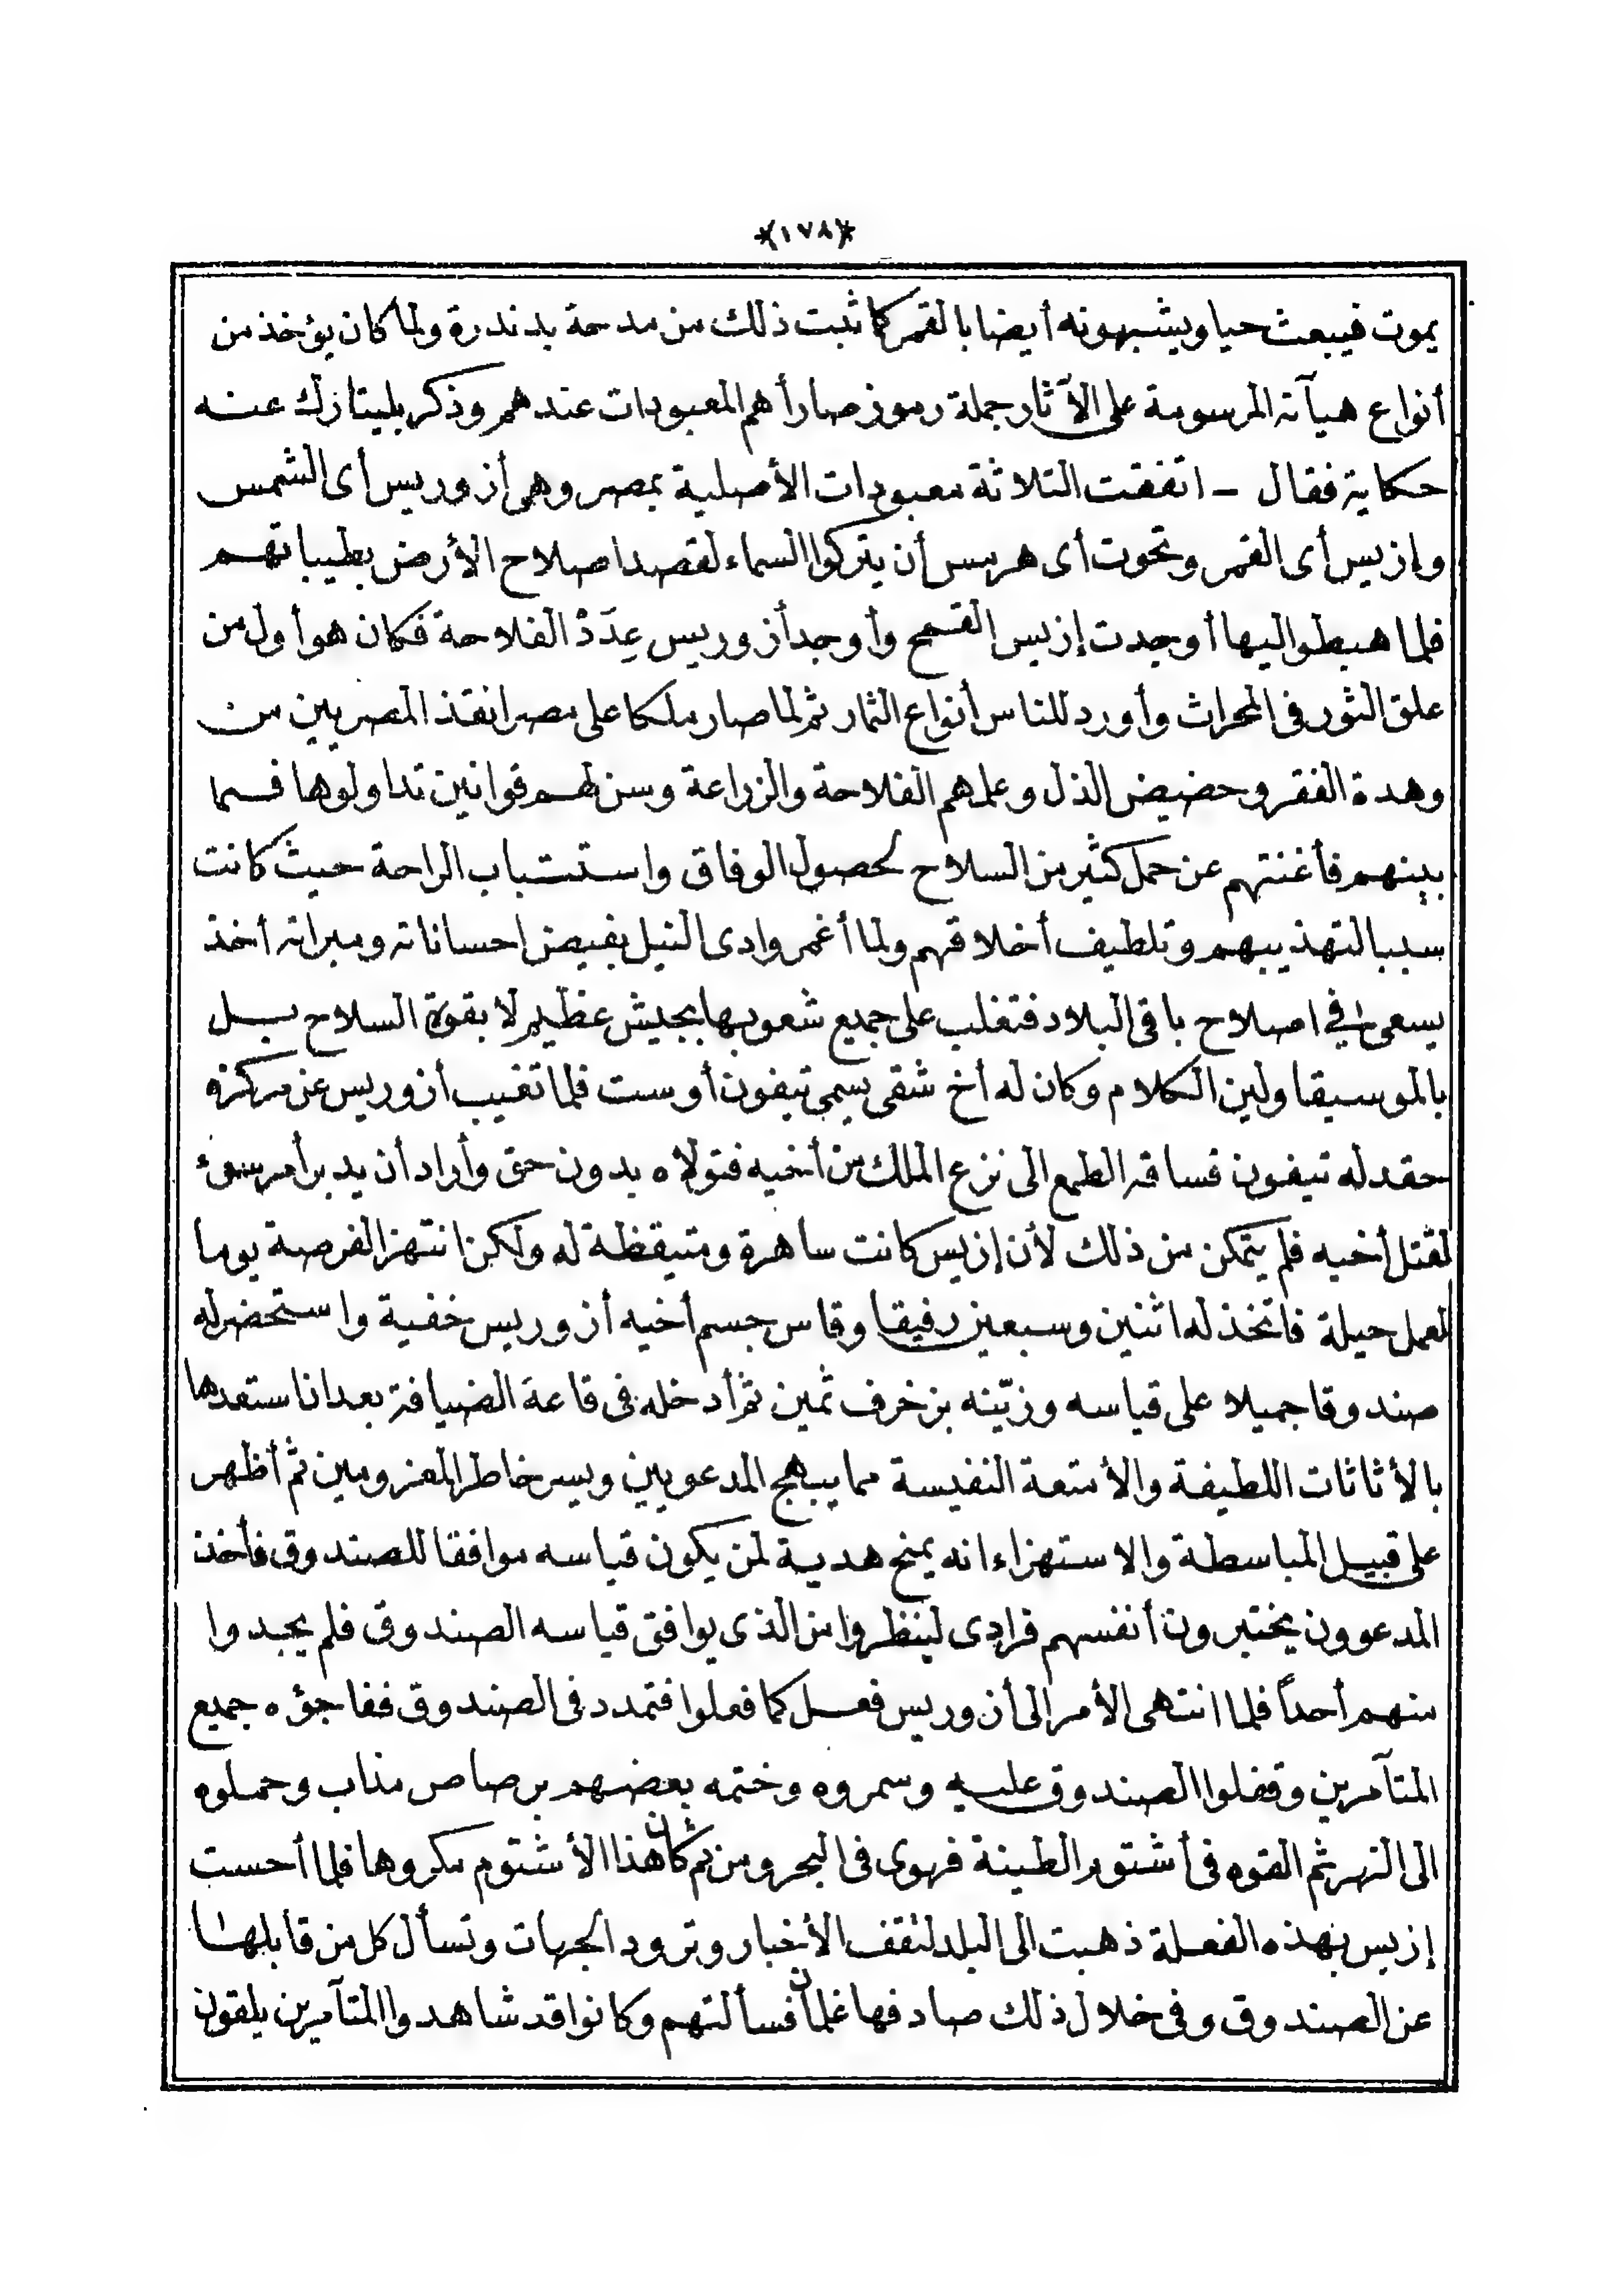 *(١٧٨)*
يموت فيبعث حيا ويشبهونه أيضا بالقمر كما ثبت ذلك من مدحة بدندرة ولما كان يؤخذ من
أنواع هيآته المرسومة على الآثار جملة رموز صار أهم المعبودات عندهم وذكر بليتازك عنه
حكاية فقال - اتفقت الثلاثة معبودات الأصلية بمصر وهى أزوريس أى الشمس
وإزيس أى القمر وتحوت أى هرمس أن يتركوا السماء لقصد اصلاح الأرض بطيباتهم
فلما هبطوا اليها أوجدت إزيس القمح وأوجد أزوريس عِدَدْ الفلاحة فكان هو أول من
علق الثور فى المحراث وأورد للناس أنواع الثمار ثم لما صار ملكا على مصر انقذ المصريين من
وهدة الفقر وحضيض الذل وعلمهم الفلاحة والزراعة وسن لهم قوانين تداولوها فيما
بينهم فأغنتهم عن حمل كثير من السلاح لحصول الوفاق واستتباب الراحة حيث كانت
سببا لتهذيبهم وتلطيف أخلاقهم ولما أغمر وادى النيل بفيض احساناته ومبراته أخذ
يسعى فى اصلاح باقى البلاد فتغلب على جميع شعوبها بجيش عظيم لا بقوة السلاح بل
بالموسيقا ولين الكلام وكان له أخ شقى يسمى تيفون أوست فلما تغيب أزوريس عن مركزه
حقد له تيفون فساقه الطمع الى نزع الملك من أخيه فتولاه بدون حق وأراد أن يدبر أمر سوء
لقتل أخيه فلم يتمكن من ذلك لأن إزيس كانت ساهرة ومتيقظة له ولكن انتهز الفرصة يوما
لعمل حيلة فاتخذ له اثنين وسبعين رفيقا وقاس جسم أخيه أزوريس خفية واستحضر له
صندوقا جميلا على قياسه وزيّنه بزخرف ثمين ثم أدخله فى قاعة الضيافة بعد ان استعدها
بالأثاثات اللطيفة والأمتعة النفيسة مما يبهج المدعويين ويسر خاطر المعزومين ثم أظهر
على قبيل المباسطة والاستهزاء انه يمنح هدية لمن يكون قياسه موافقا للصندوق فأخذ
المدعوون يختبرون أنفسهم فرادى لينظروا من الذى يوافق قياسه الصندوق فلم يجدوا
منهم أحداً فلما انتهى الأمر الى أزوريس فعل كما فعلوا فتمدد فى الصندوق ففاجؤه جميع
المتآمرين وقفلوا الصندوق عليه وسمروه وختمه بعضهم برصاص مذاب وحملوه
الى النهر ثم القوه فى أشتوم الطينة فهوى فى البحر ومن ثم كان هذا الأشتوم مكروها فلما أحست
إزيس بهذه الفعلة ذهبت الى البلد لتقف الأخبار وترود الجهات وتسأل كل من قابلها
عن الصندوق وفى خلال ذلك صادفها غلمان فسألتهم وكانوا قد شاهدوا المتآمرين يلقون